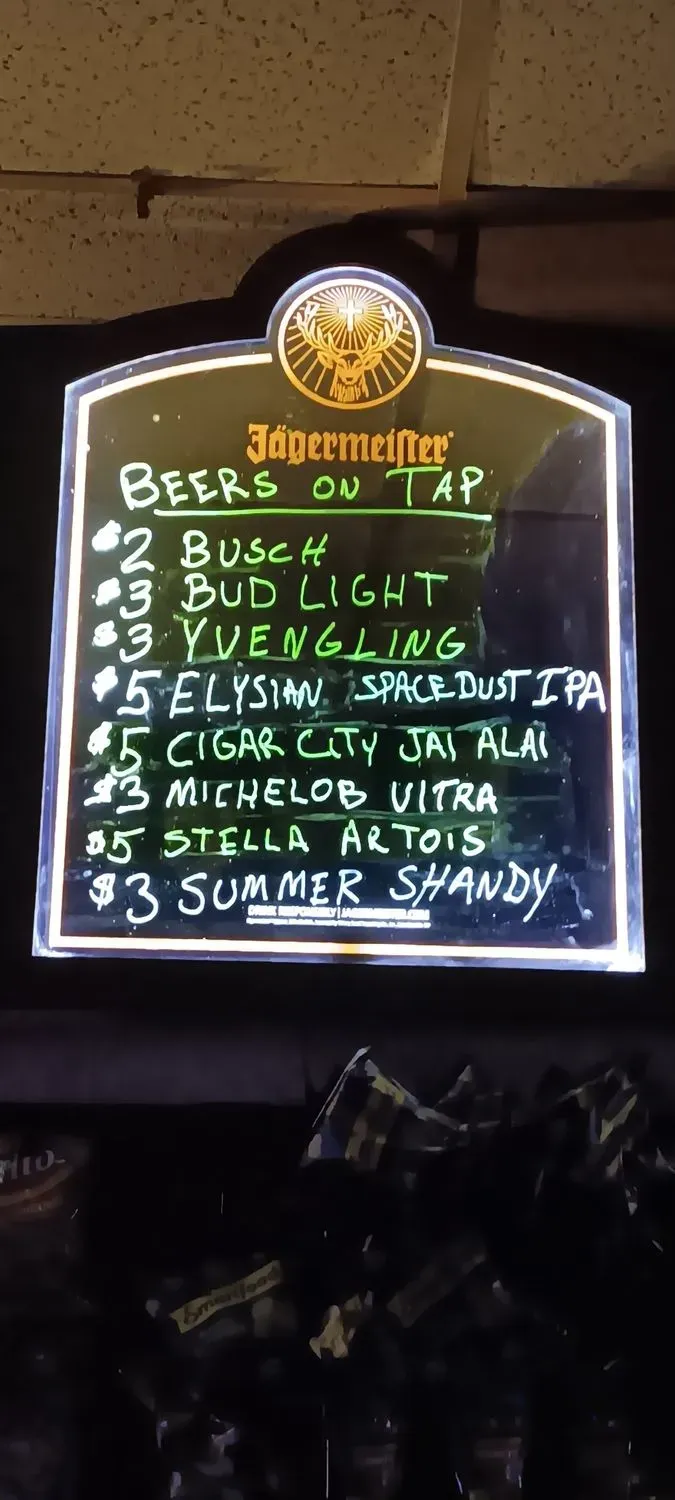 Jägermeister
BEERS ON TAP
$2 BUSCH
$3 BUD LIGHT
$3 YUENGLING
$5 ELYSIAN SPACEDUST IPA
$5 CIGAR CITY JAI ALAI
$3 MICHELOB ULTRA
$5 STELLA ARTOIS
$3 SUMMER SHANDY
DRINK RESPONSIBLY | JAGERMEISTER.COM
Smartfood